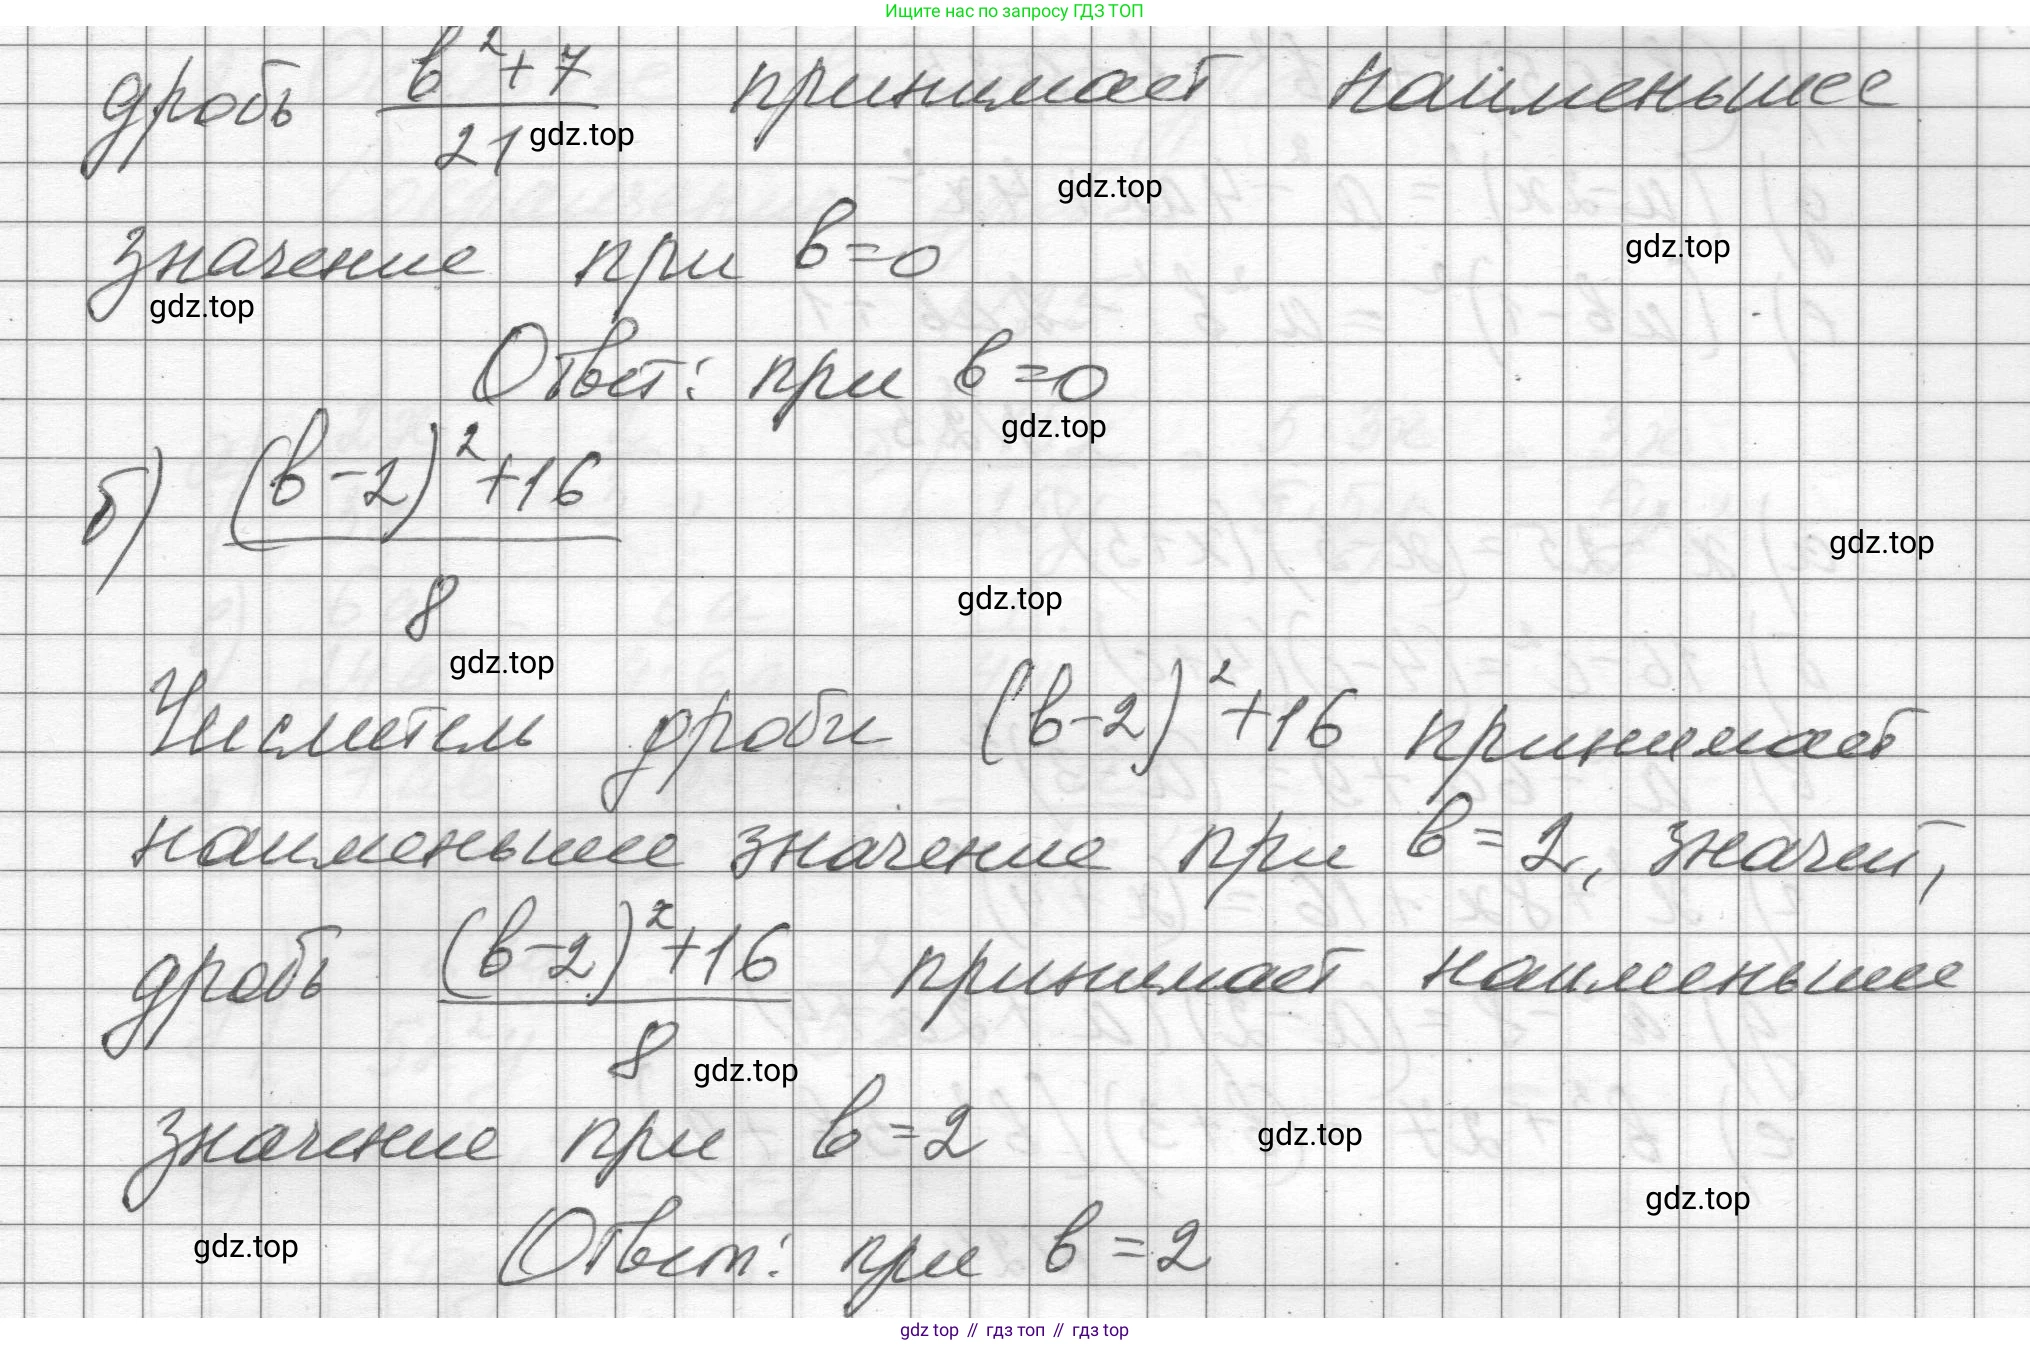 Ищите нас по запросу ГДЗ ТОП
дробь (в²+7)/21 принимает наименьшее
gdz.top
gdz.top
значение при в=0
gdz.top
gdz.top
Ответ: при в=0
gdz.top
б) ((в-2)²+16)/8
gdz.top
gdz.top
gdz.top
Числитель дроби (в-2)²+16 принимает
наименьшее значение при в=2, значит,
дробь ((в-2)²+16)/8 принимает наименьшее
gdz.top
значение при в=2
gdz.top
gdz.top
gdz.top
Ответ: при в=2
gdz top // гдз топ // гдз top